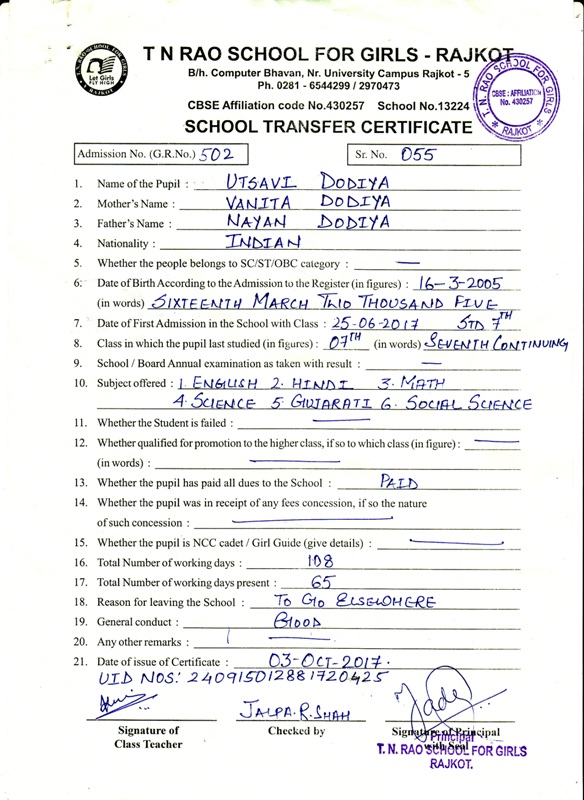 T. N. RAO SCHOOL FOR GIRLS
Let Girls
FLY HIGH
RAJKOT
T N RAO SCHOOL FOR GIRLS - RAJKOT
B/h. Computer Bhavan, Nr. University Campus Rajkot - 5
Ph. 0281 - 6544299 / 2970473
CBSE Affiliation code No.430257 School No.13224
T. N. RAO SCHOOL FOR GIRLS
CBSE : AFFILIATION
No. 430257
* RAJKOT *
SCHOOL TRANSFER CERTIFICATE
Admission No. (G.R.No.) 502 Sr. No. 055
1. Name of the Pupil : UTSAVI DODIYA
2. Mother's Name : VANITA DODIYA
3. Father's Name : NAYAN DODIYA
4. Nationality : INDIAN
5. Whether the people belongs to SC/ST/OBC category : —
6. Date of Birth According to the Admission to the Register (in figures) : 16-3-2005
(in words) SIXTEENTH MARCH TWO THOUSAND FIVE
7. Date of First Admission in the School with Class : 25-06-2017 STD 7TH
8. Class in which the pupil last studied (in figures) : 07TH (in words) SEVENTH CONTINUING
9. School / Board Annual examination as taken with result : —
10. Subject offered : 1. ENGLISH 2. HINDI 3. MATH
4. SCIENCE 5 GUJARATI 6. SOCIAL SCIENCE
11. Whether the Student is failed : —
12. Whether qualified for promotion to the higher class, if so to which class (in figure) : —
(in words) : —
13. Whether the pupil has paid all dues to the School : PAID
14. Whether the pupil was in receipt of any fees concession, if so the nature
of such concession : —
15. Whether the pupil is NCC cadet / Girl Guide (give details) : —
16. Total Number of working days : 108
17. Total Number of working days present : 65
18. Reason for leaving the School : TO GO ELSEWHERE
19. General conduct : GOOD
20. Any other remarks : —
21. Date of issue of Certificate : 03-OCT-2017.
UID NOS: 240915012881720425
JALPA.R.SHAH
Signature of Checked by Signature of Principal
Class Teacher with Seal
Principal
T. N. RAO SCHOOL FOR GIRLS
RAJKOT.